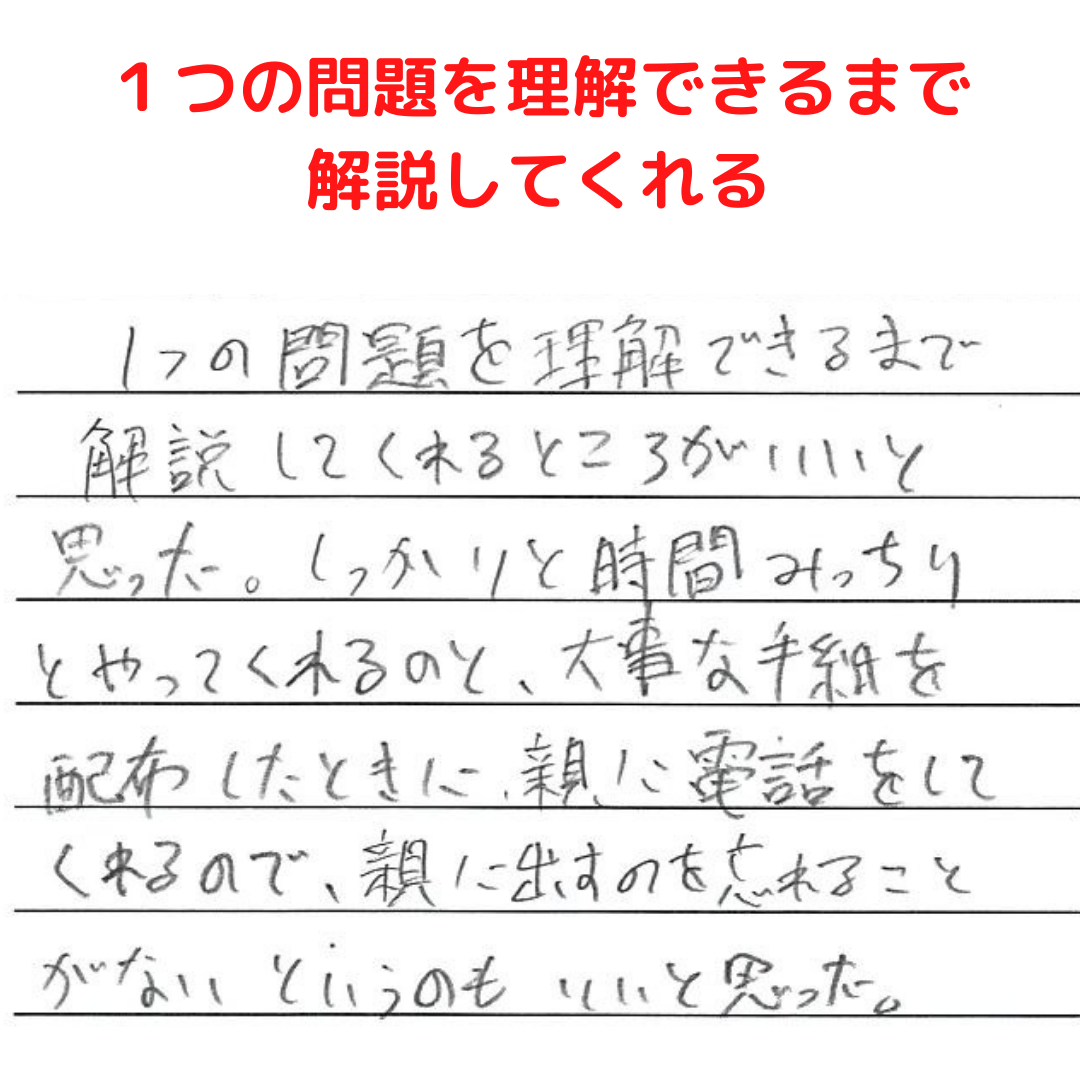 １つの問題を理解できるまで
解説してくれる
1つの問題を理解できるまで
解説してくれるところがいいと
思った。しっかりと時間みっちり
とやってくれるのと、大事な手紙を
配布したときに、親に電話をして
くれるので、親に出すのを忘れること
がないというのもいいと思った。